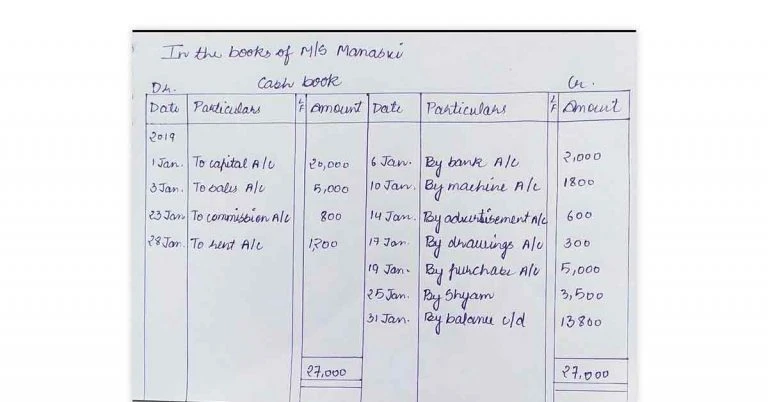 In the books of M/S Manaswi
Cash book
Dr. Cr.
Date Particulars L F Amount Date Particulars L F Amount
2019
1 Jan. To capital A/c 20,000 6 Jan. By bank A/c 2,000
3 Jan. To sales A/c 5,000 10 Jan. By machine A/c 1800
23 Jan To commission A/c 800 14 Jan. By advertisement A/c 600
28 Jan. To rent A/c 1,200 17 Jan. By drawings A/c 300
19 Jan. By purchase A/c 5,000
25 Jan. By Shyam 3,500
31 Jan. By balance c/d 13800
27,000 27,000